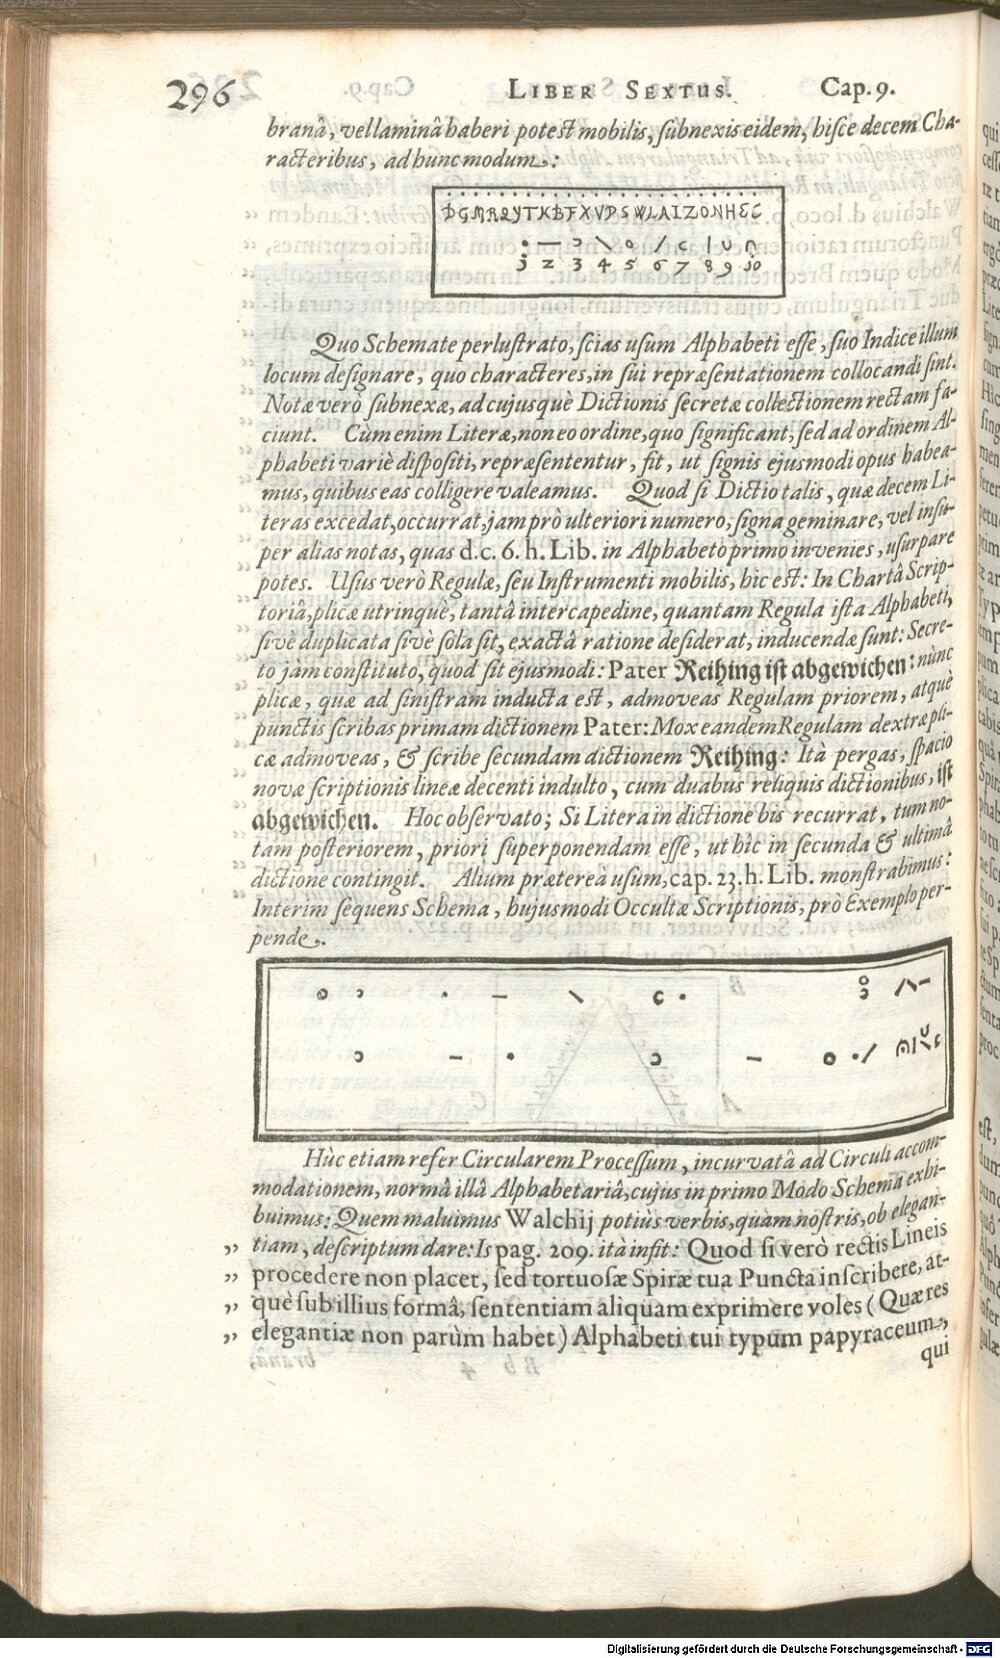 296 LIBER SEXTUS. Cap. 9.
branâ, vel laminâ haberi potest mobilis, subnexis eidem, hisce decem Cha-
racteribus, ad hunc modum:
1 2 3 4 5 6 7 8 9 10
Quo Schemate perlustrato, scias usum Alphabeti esse, suo Indice illum
locum designare, quo characteres, in sui repræsentationem collocandi sint.
Notæ verò subnexæ, ad cujusquè Dictionis secretæ collectionem rectam fa-
ciunt. Cùm enim Literæ, non eo ordine, quo significant, sed ad ordinem Al-
phabeti variè dispositi, repræsententur, fit, ut signis ejusmodi opus habea-
mus, quibus eas colligere valeamus. Quod si Dictio talis, quæ decem Li-
teras excedat, occurrat, jam prò ulteriori numero, signa geminare, vel insu-
per alias notas, quas d. c. 6. h. Lib. in Alphabeto primo invenies, usurpare
potes. Usus verò Regulæ, seu Instrumenti mobilis, hic est: In Chartâ Scrip-
toriâ, plicæ utrinquè, tantâ intercapedine, quantam Regula ista Alphabeti,
sivè duplicata sivè sola sit, exactâ ratione desiderat, inducendæ sunt: Secre-
to jàm constituto, quod sit ejusmodi: Pater Reihing ist abgewichen: nùnc
plicæ, quæ ad sinistram inducta est, admoveas Regulam priorem, atquè
punctis scribas primam dictionem Pater: Mox eandem Regulam dextræ pli-
cæ admoveas, & scribe secundam dictionem Reihing: Ità pergas, spacio
novæ scriptionis lineæ decenti indulto, cum duabus reliquis dictionibus, ist
abgewichen. Hoc observato; Si Litera in dictione bis recurrat, tum no-
tam posteriorem, priori superponendam esse, ut hìc in secunda & ultimâ
dictione contingit. Alium prætereà usum, cap. 23. h. Lib. monstrabimus:
Interim sequens Schema, hujusmodi Occultæ Scriptionis, prò Exemplo per-
pende.
Hùc etiam refer Circularem Processum, incurvatâ ad Circuli accom-
modationem, normâ illâ Alphabetariâ, cujus in primo Modo Schema exhi-
buimus: Quem maluimus Walchij potiùs verbis, quàm nostris, ob elegan-
„ tiam, descriptum dare: Is pag. 209. ità infit: Quod si verò rectis Lineis
„ procedere non placet, sed tortuosæ Spiræ tua Puncta inscribere, at-
„ què sub illius formâ, sententiam aliquam exprimere voles (Quæ res
„ elegantiæ non parùm habet) Alphabeti tui typum papyraceum,
qui
Digitalisierung gefördert durch die Deutsche Forschungsgemeinschaft - DFG